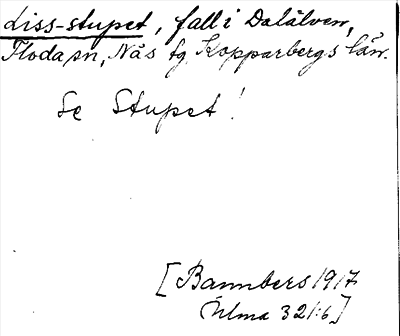 Liss-stupet, fall i Dalälven,
Floda sn, Nås tg Kopparbergs län.
Se Stupet!
[Bannbers 1917
Ulma 321:6]